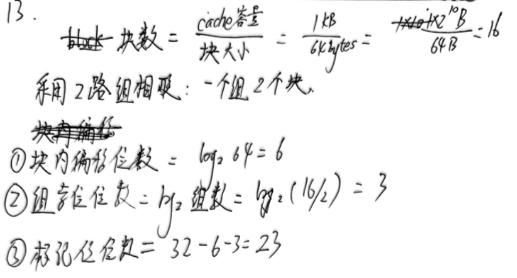 13.
块数 = cache容量/块大小 = 1KB/64bytes = 1×2^10B/64B = 16
采用2路组相联:一个组2个块.
块内偏移
①块内偏移位数 = log₂64 = 6
②组索位位数 = log₂组数 = log₂(16/2) = 3
③标记位位数 = 32-6-3=23